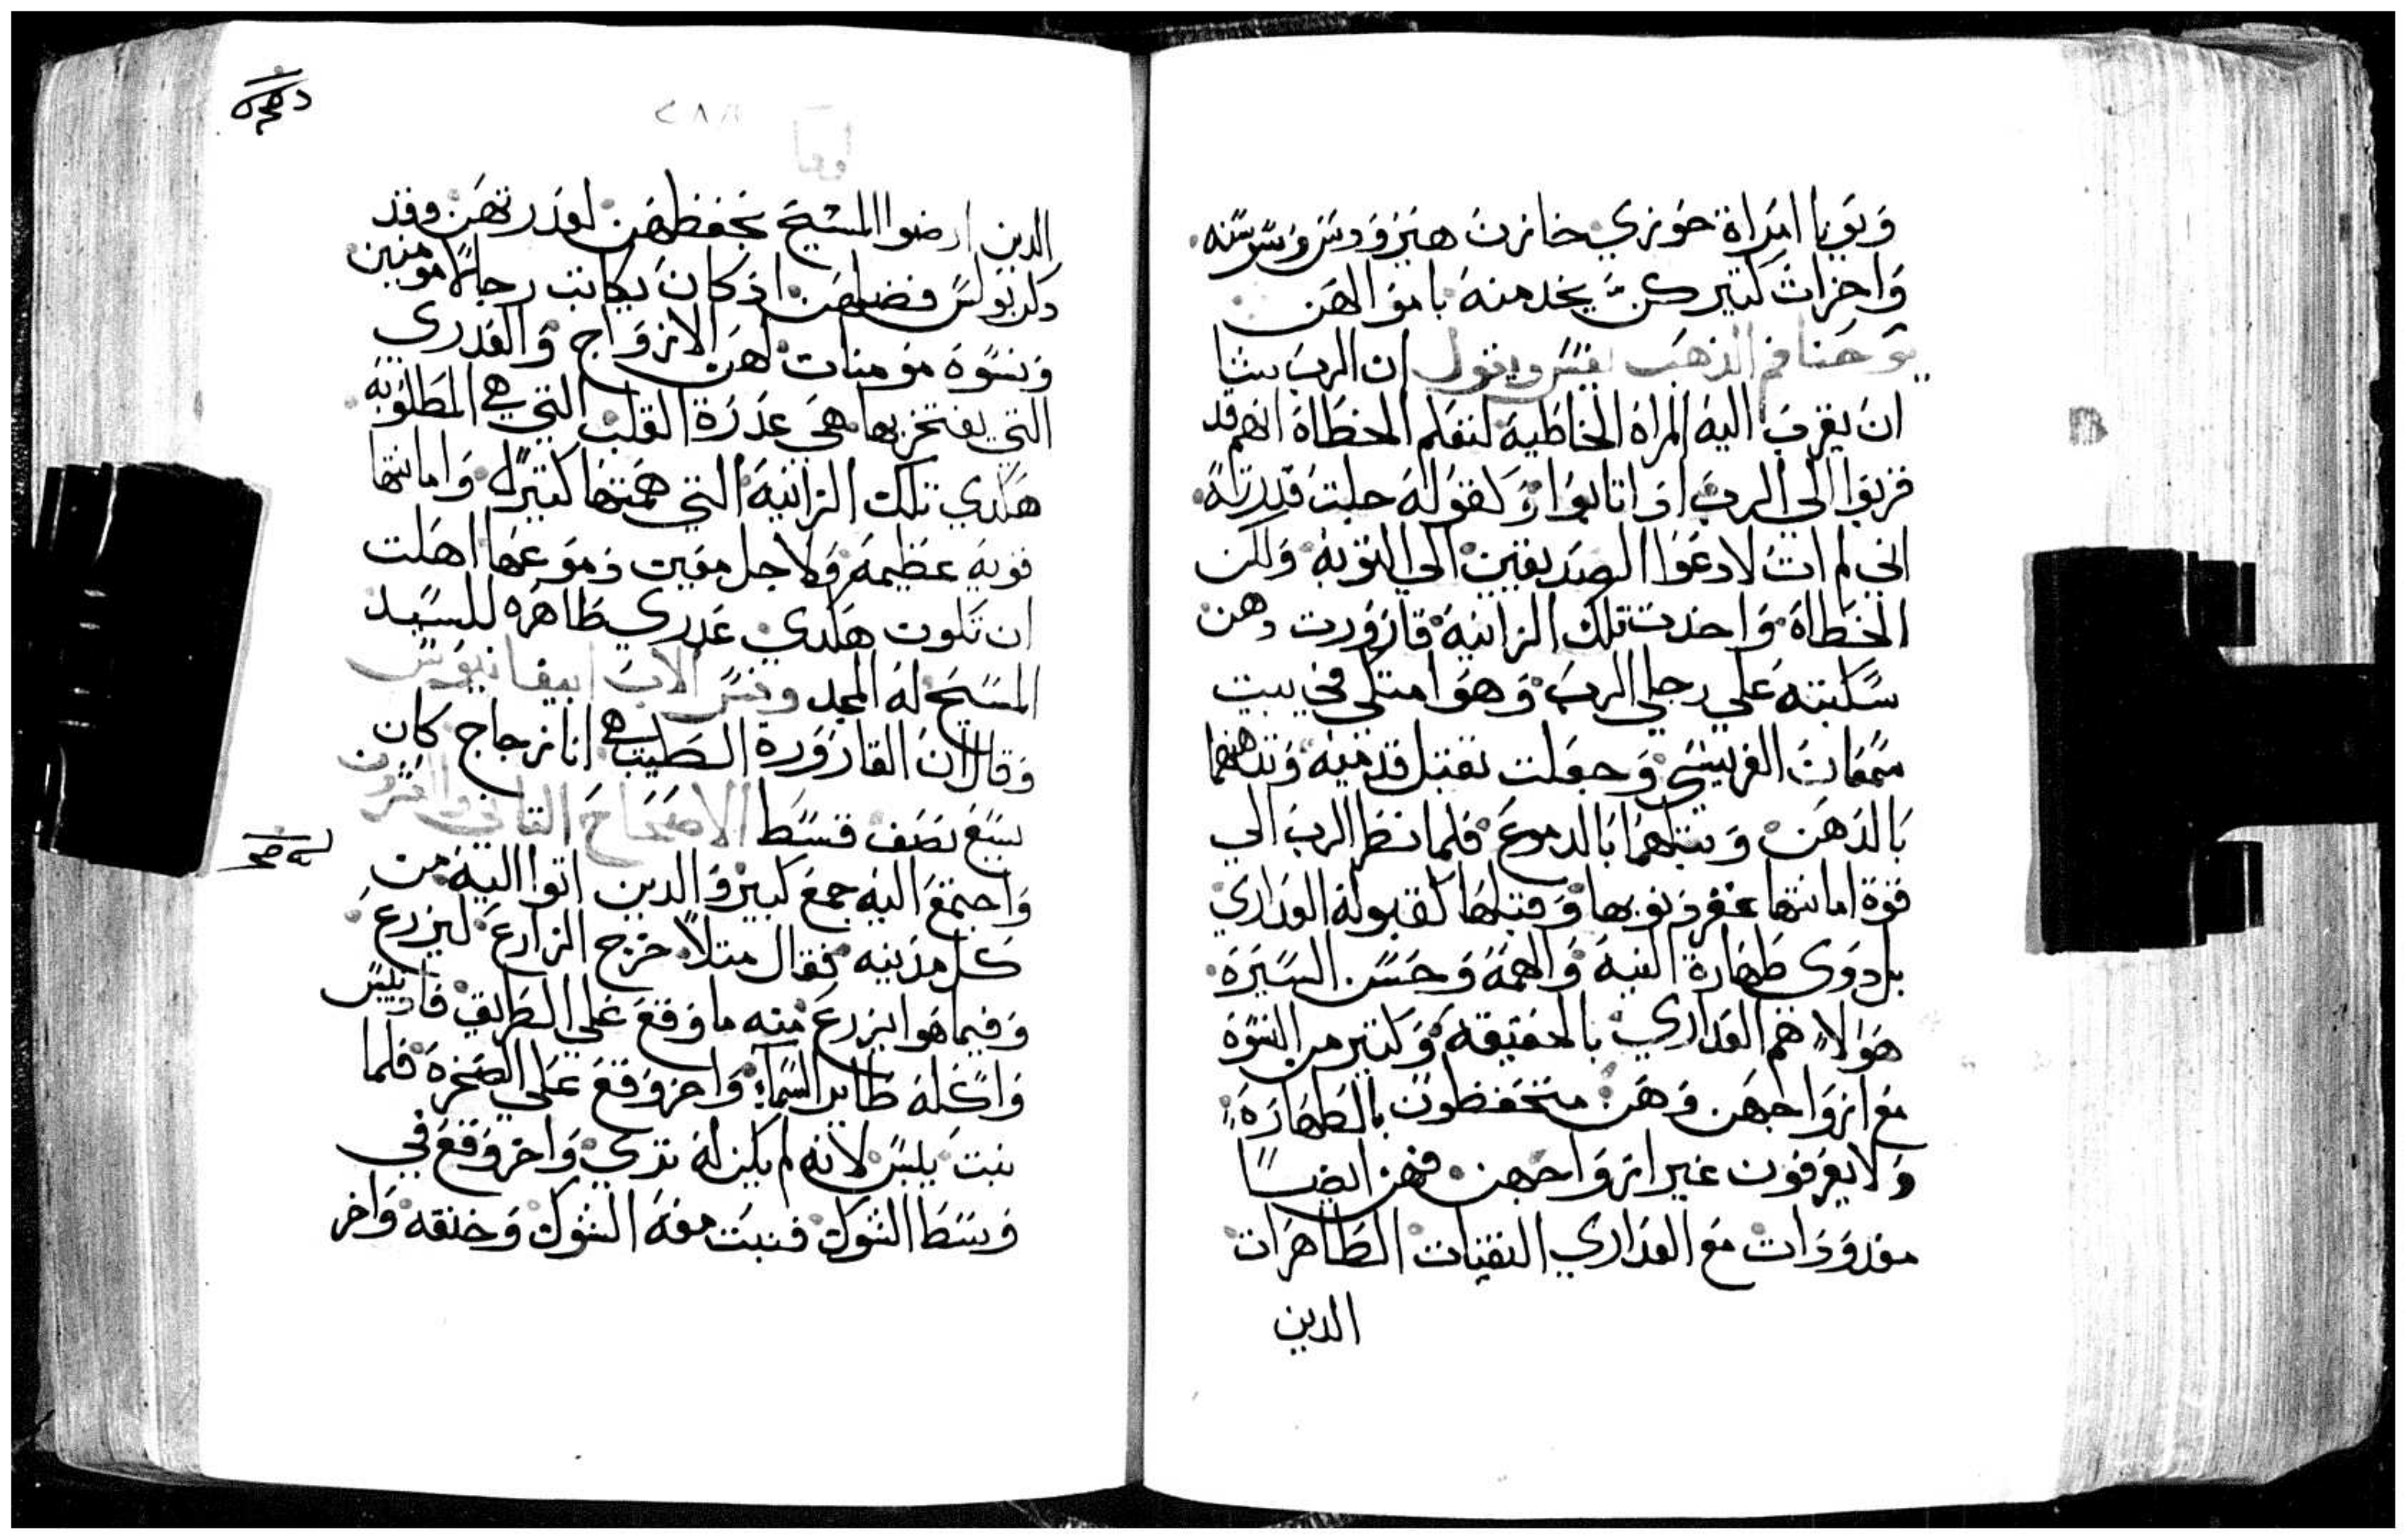 ويونا امراة خوزي خازن هيرودس وسوسنه
واخرات كتير كن يخدمنه باموالهن
يوحنا فم الذهب يفسر ويقول ان الرب يشا
ان يقرب اليه المراة الخاطية لتعلم الخطاة انهم قد
قربوا الي الرب اذا تابوا وكقوله جلت قدرته
اني لم ات لادعوا الصديقين الي التوبة ولكن
الخطاة واخذت تلك الزانية قارورت دهن
سكبته علي رجلي الرب وهوا متكي في بيت
سمعان الفريسي وجعلت تقبل قدميه وتدهنهما
بالدهن وتبلهما بالدموع فلما نظر الرب الي
قوة امانتها غفر دنوبها وقبلها كقبوله العداري
بل دوي طهارة النية والهمة وحسن السيرة
هولاء هم العداري بالحقيقه وكتير من النسوة
مع ازواجهن وهن متحفظون بالطهارة
ولا يعرفون غير ازواجهن فهن ايضا
معدودات مع العداري النقيات الطاهرات
الدين
٢٨٨
الدين ارضوا المسيح بحفظهن لعدرتهن وقد
دكر بولس فضلهن اذ كان يكاتب رجالا مومنين
ونسوة مومنات لهن الازواج والعدري
التي يفتخر بها هي عدرة القلب التي هي المطلوبة
هكدي تلك الزانية التي همتها كتيرة وامانتها
قوية عظيمة ولاجل دموعها اهلت
ان تكون هكدي عدري طاهره للسيد
المسيح له المجد وفسر الاب ابيفانيوس
وقال ان القارورة الطيب هي انا زجاج كان
يسع نصف قسط الاصحاح التاني والعشرون
واجتمع اليه جمع كبير والدين اتوا اليه من
كل مدينه فقال متلا خرج الزارع ليزرع
وفيما هوا يزرع منه ما وقع علي الطريق فاديس
واكله طاير السماء واخر وقع علي الصخرة فلما
نبت يبس لانه لم يكن له تري واخر وقع في
وسط الشوك فنبت معه الشوك وخنقه واخر